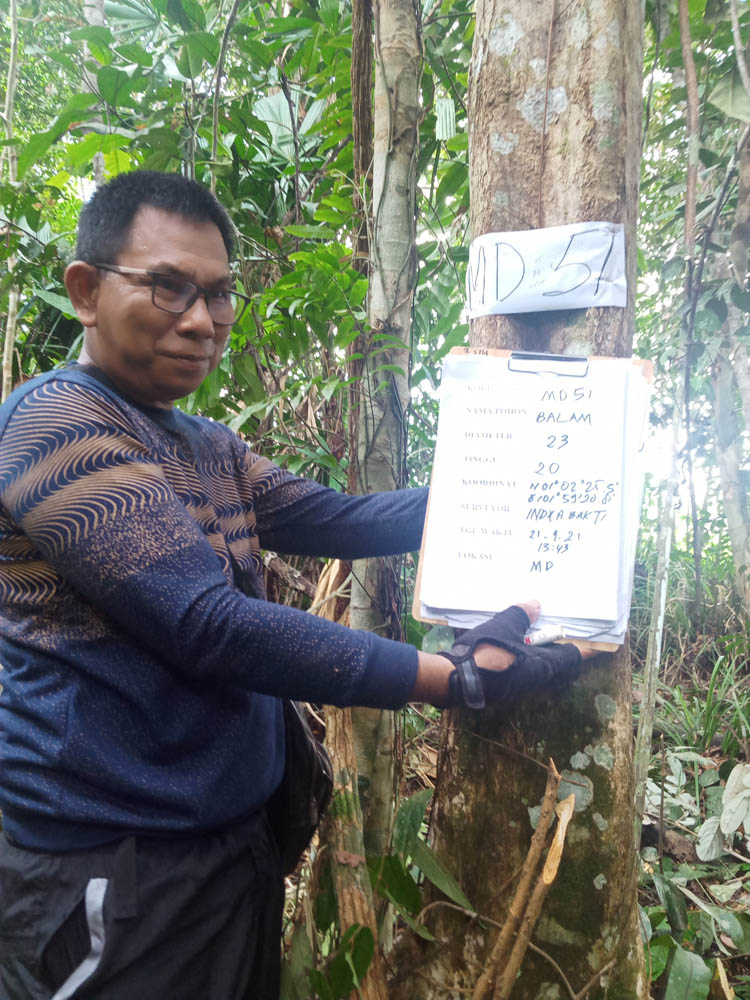 MD 51
MD51
NAMA POHON BALAM
DIAMETER 23
TINGGI 20
KOORDINAT N 01° 02' 25.5'
E101° 59' 20.8'
SURVEYOR INDRA BAKTI
TGL/WAKTU 21-9-21
13:43
LOKASI MD